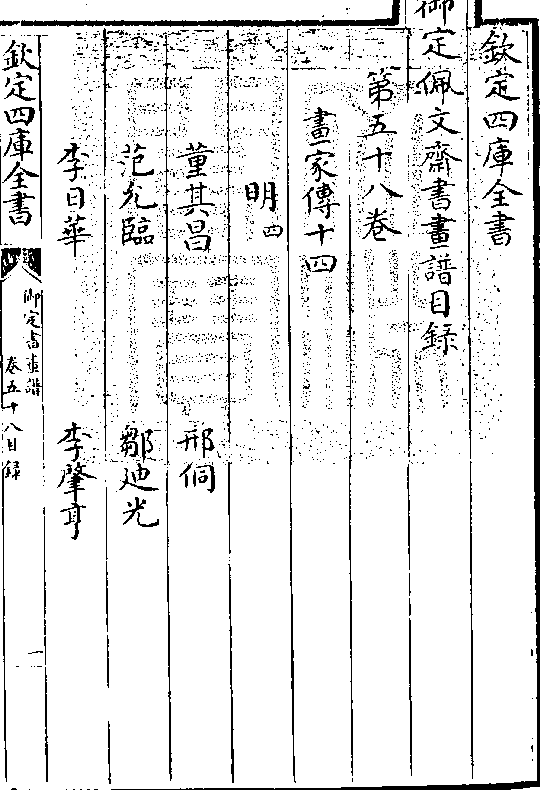 欽定四庫全書
御定佩文齋書畫譜目録
第五十八卷
畫家傳十四
明四
董其昌 邢侗
范允臨 鄒迪光
李日華 李肇亨
欽定四庫全書
御定書畫譜
卷五十八目録
一